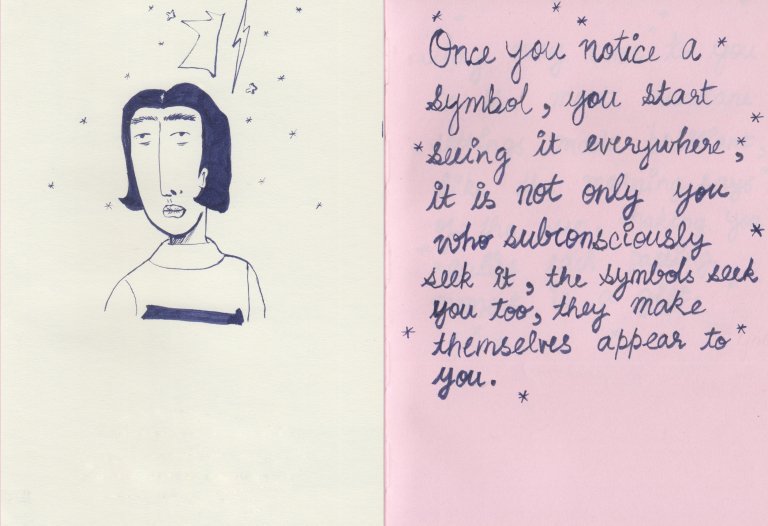 Once you notice a
symbol, you start
seeing it everywhere,
it is not only you
who subconsciously
seek it, the symbols seek
you too, they make
themselves appear to
you.